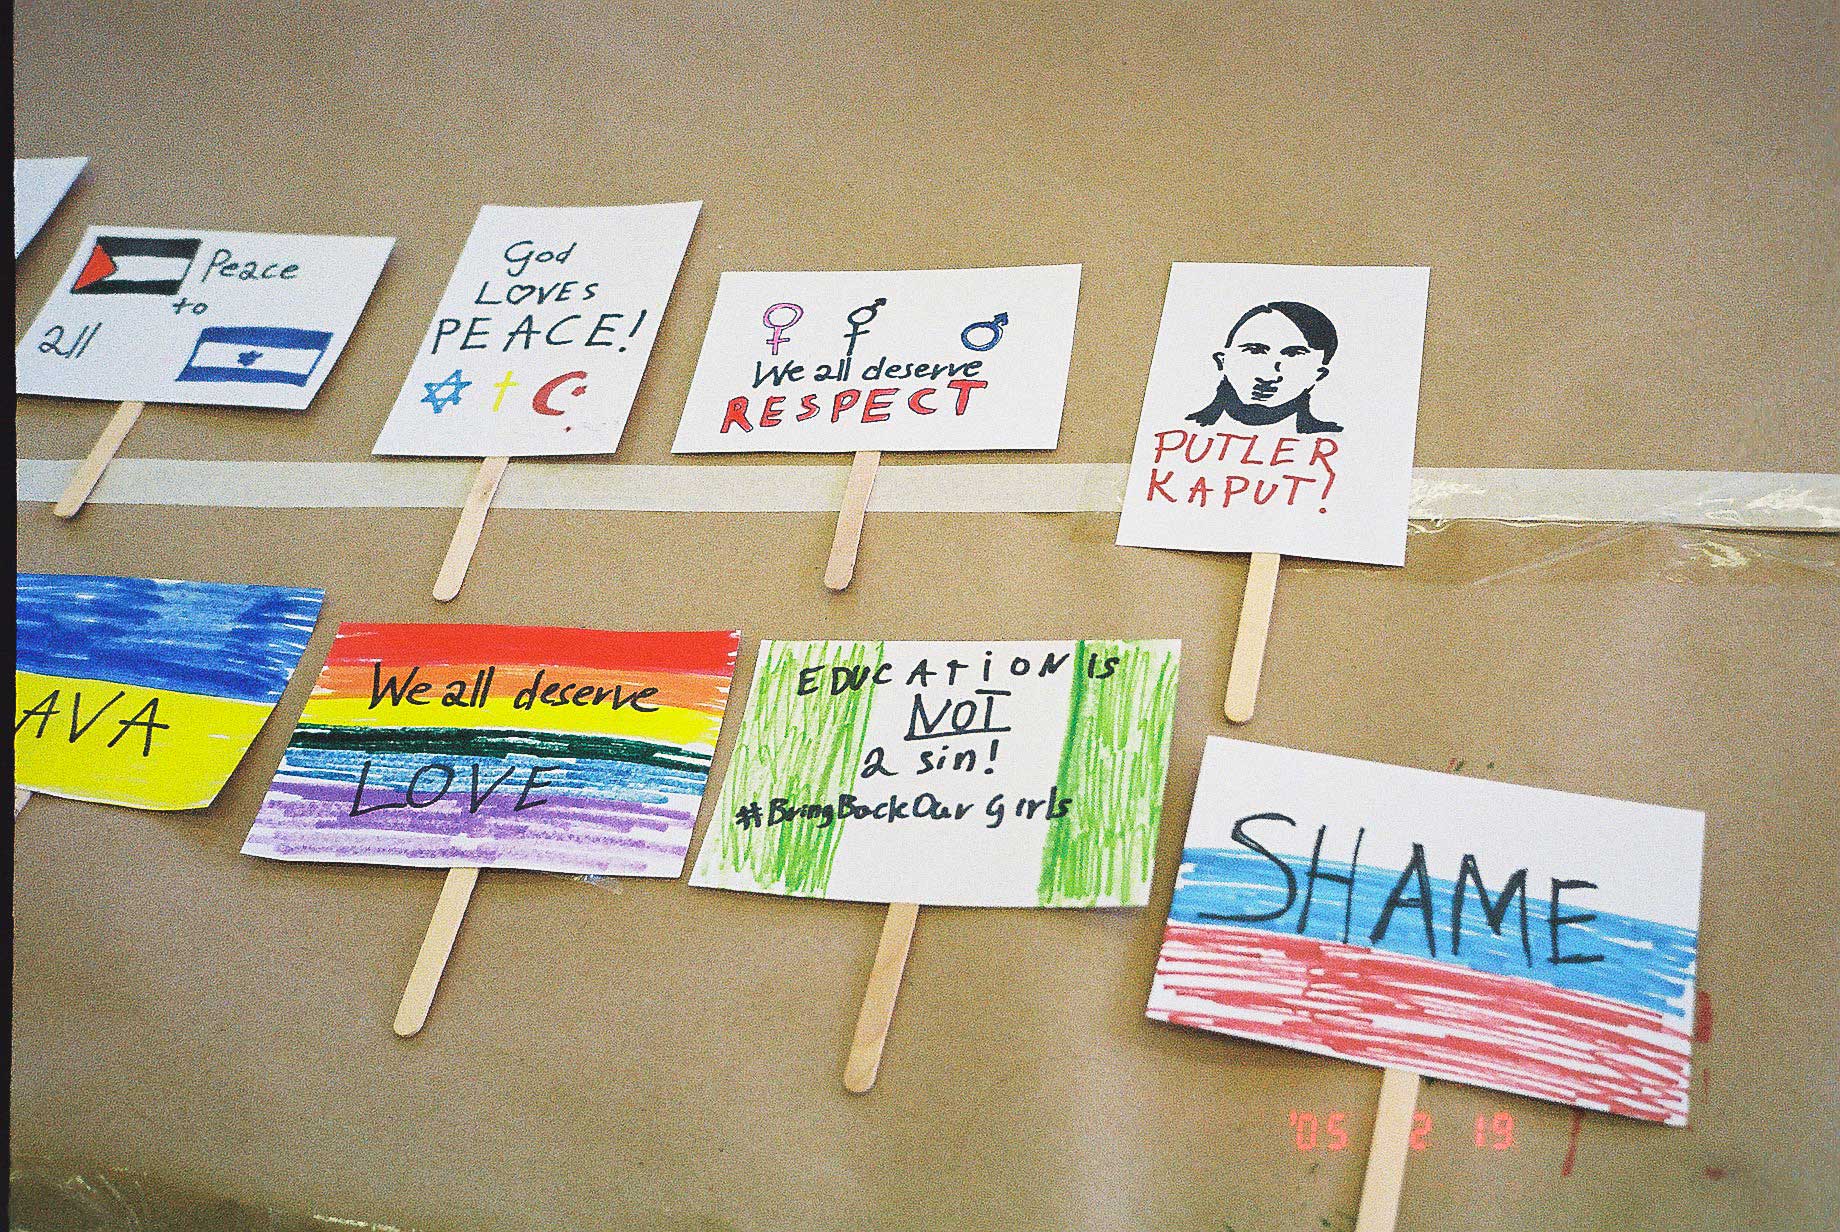 Peace
to
all
God
LOVES
PEACE!
We all deserve
RESPECT
PUTLER
KAPUT!
AVA
We all deserve
LOVE
EDUCATION IS
NOT
a sin!
#BringBackOur Girls
SHAME
'05 2 19